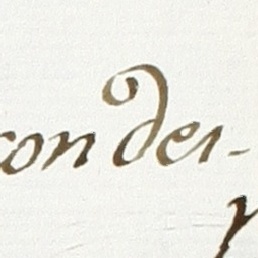 con der-